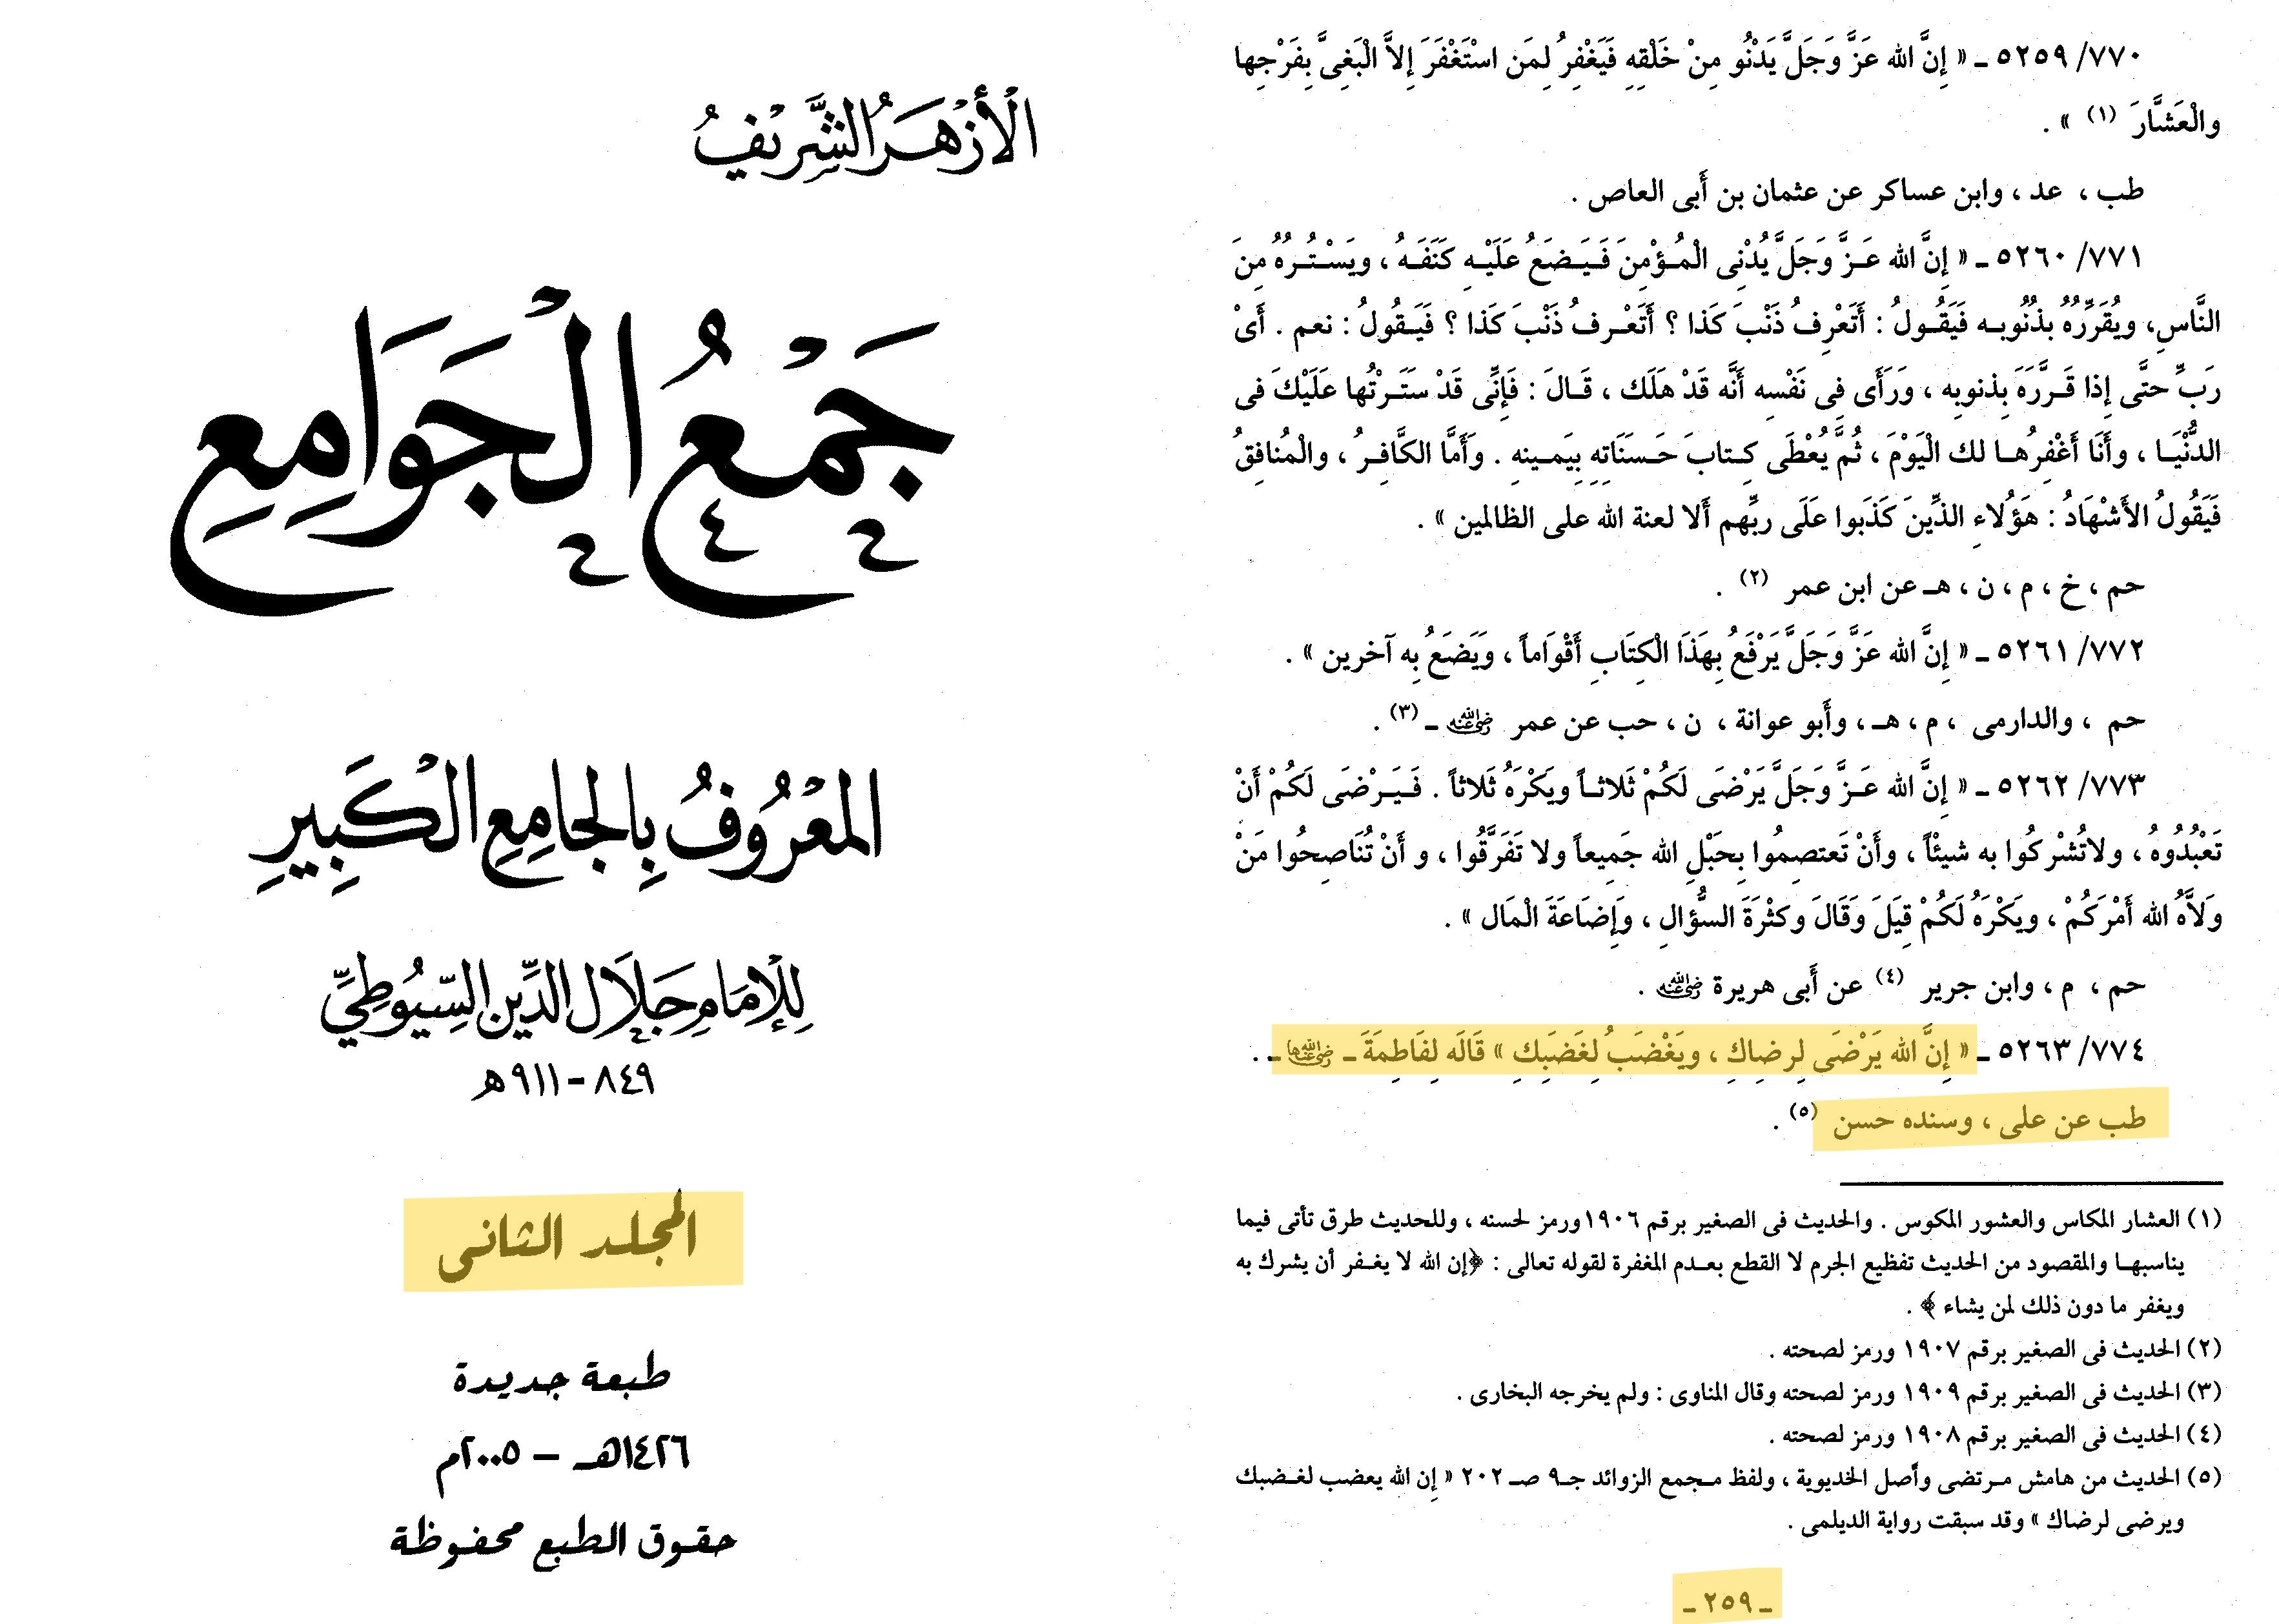 الأَزْهَرُ الشَّرِيفُ
جَمْعُ الْجَوَامِعِ
المَعْرُوفُ بِالجَامِعِ الْكَبِيرِ
لِلْإِمَامِ جَلَالِ الدِّينِ السُّيُوطِيِّ
٨٤٩ - ٩١١ هـ
المجلد الثانى
طبعة جديدة
١٤٢٦هـ – ٢٠٠٥م
حقوق الطبع محفوظة
٧٧٠/ ٥٢٥٩ ـ « إِنَّ الله عَزَّ وَجَلَّ يَدْنُو مِنْ خَلْقِهِ فَيَغْفِرُ لِمَن اسْتَغْفَرَ إِلاَّ الْبَغِىَّ بِفَرْجِها
والْعَشَّارَ (١) » .
طب ، عد ، وابن عساكر عن عثمان بن أَبى العاص .
٧٧١/ ٥٢٦٠ ـ « إِنَّ الله عَزَّ وَجَلَّ يُدْنِى الْمُؤْمِنَ فَيَضَعُ عَلَيْهِ كَنَفَهُ ، ويَسْتُرُهُ مِنَ
النَّاسِ، ويُقَرِّرُهُ بِذُنُوبِه فَيَقُولُ : أَتَعْرِفُ ذَنْبَ كَذا ؟ أَتَعْرِفُ ذَنْبَ كَذا ؟ فَيَقُولُ : نعم . أَىْ
رَبِّ حتَّى إِذا قَرَّرَهَ بِذنوبِه ، وَرَأَى فِى نَفْسِه أَنَّه قَدْ هَلَك ، قَالَ : فَإِنِّى قَدْ سَتَرْتُها عَلَيْكَ فى
الدُّنْيَا ، وأَنَا أَغْفِرُها لك الْيَوْمَ ، ثُمَّ يُعْطَى كِتابَ حَسَنَاتِهِ بِيَمينهِ . وَأَمَّا الكَّافِرُ ، والْمُنافِقُ
فَيَقُولُ الأَشْهَادُ : هَؤُلاءِ الذِّينَ كَذَبوا عَلَى ربِّهم أَلا لعنة الله على الظالمين » .
حم ، خ ، م ، ن ، هـ عن ابن عمر (٢) .
٧٧٢/ ٥٢٦١ ـ « إِنَّ الله عَزَّ وَجَلَّ يَرْفَعُ بِهَذَا الْكِتَابِ أَقْوَاماً ، وَيَضَعُ بِه آخرين » .
حم ، والدارمى ، م ، هـ ، وأَبو عوانة ، ن ، حب عن عمر رضي الله عنه ـ (٣) .
٧٧٣/ ٥٢٦٢ ـ « إِنَّ الله عَزَّ وَجَلَّ يَرْضَى لَكُمْ ثَلاثاً ويَكْرَهُ ثَلاثاً . فَيَرْضَى لَكُمْ أَنْ
تَعْبُدُوهُ ، ولاتُشْرِكُوا به شيئْاً ، وأَنْ تَعتصِموا بِحَبْلِ الله جَمِيعاً ولا تَفَرَّقُوا ، و أَنْ تُنَاصِحُوا مَنْ
وَلاَّهُ الله أَمْرَكُمْ ، ويَكْرَهُ لَكُمْ قِيَلَ وَقَالَ وكثْرَةَ السُّؤالِ ، وَإِضَاعَةَ الْمَال » .
حم ، م ، وابن جرير (٤) عن أَبى هريرة رضي الله عنه .
٧٧٤/ ٥٢٦٣ ـ « إِنَّ الله يَرْضَى لِرِضاكِ ، ويَغْضَبُ لِغَضَبِكِ » قَالَه لِفَاطِمَةَ ـ رضي الله عنها ـ .
طب عن على ، وسنده حسن (٥) .
(١) العشار المكاس والعشور المكوس . والحديث فى الصغير برقم ١٩٠٦ورمز لحسنه ، وللحديث طرق تأتى فيما
يناسبها والمقصود من الحديث تفظيع الجرم لا القطع بعدم المغفرة لقوله تعالى : ﴿إن الله لا يغفر أن يشرك به
ويغفر ما دون ذلك لمن يشاء ﴾ .
(٢) الحديث فى الصغير برقم ١٩٠٧ ورمز لصحته .
(٣) الحديث فى الصغير برقم ١٩٠٩ ورمز لصحته وقال المناوى : ولم يخرجه البخارى .
(٤) الحديث فى الصغير برقم ١٩٠٨ ورمز لصحته .
(٥) الحديث من هامش مرتضى وأصل الخديوية ، ولفظ مجمع الزوائد جـ٩ صـ ٢٠٢ « إِن الله يعضب لغضبك
ويرضى لرضاك » وقد سبقت رواية الديلمى .
ـ ٢٥٩ ـ